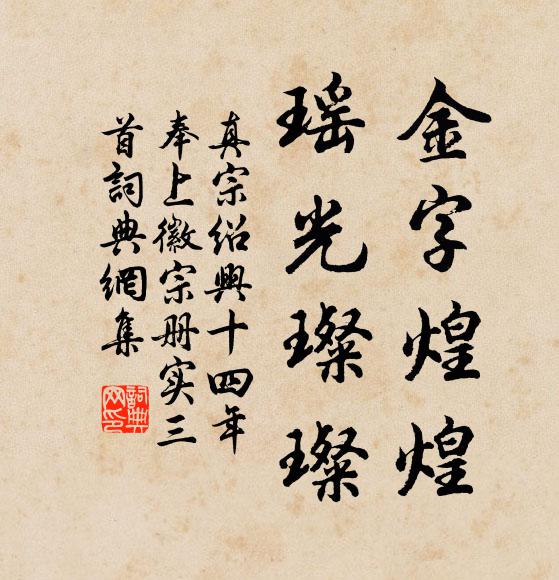 金字煌煌
瑶光璨璨
真宗绍興十四年
奉上徽宗册实三
首詞典網集
詞典網印